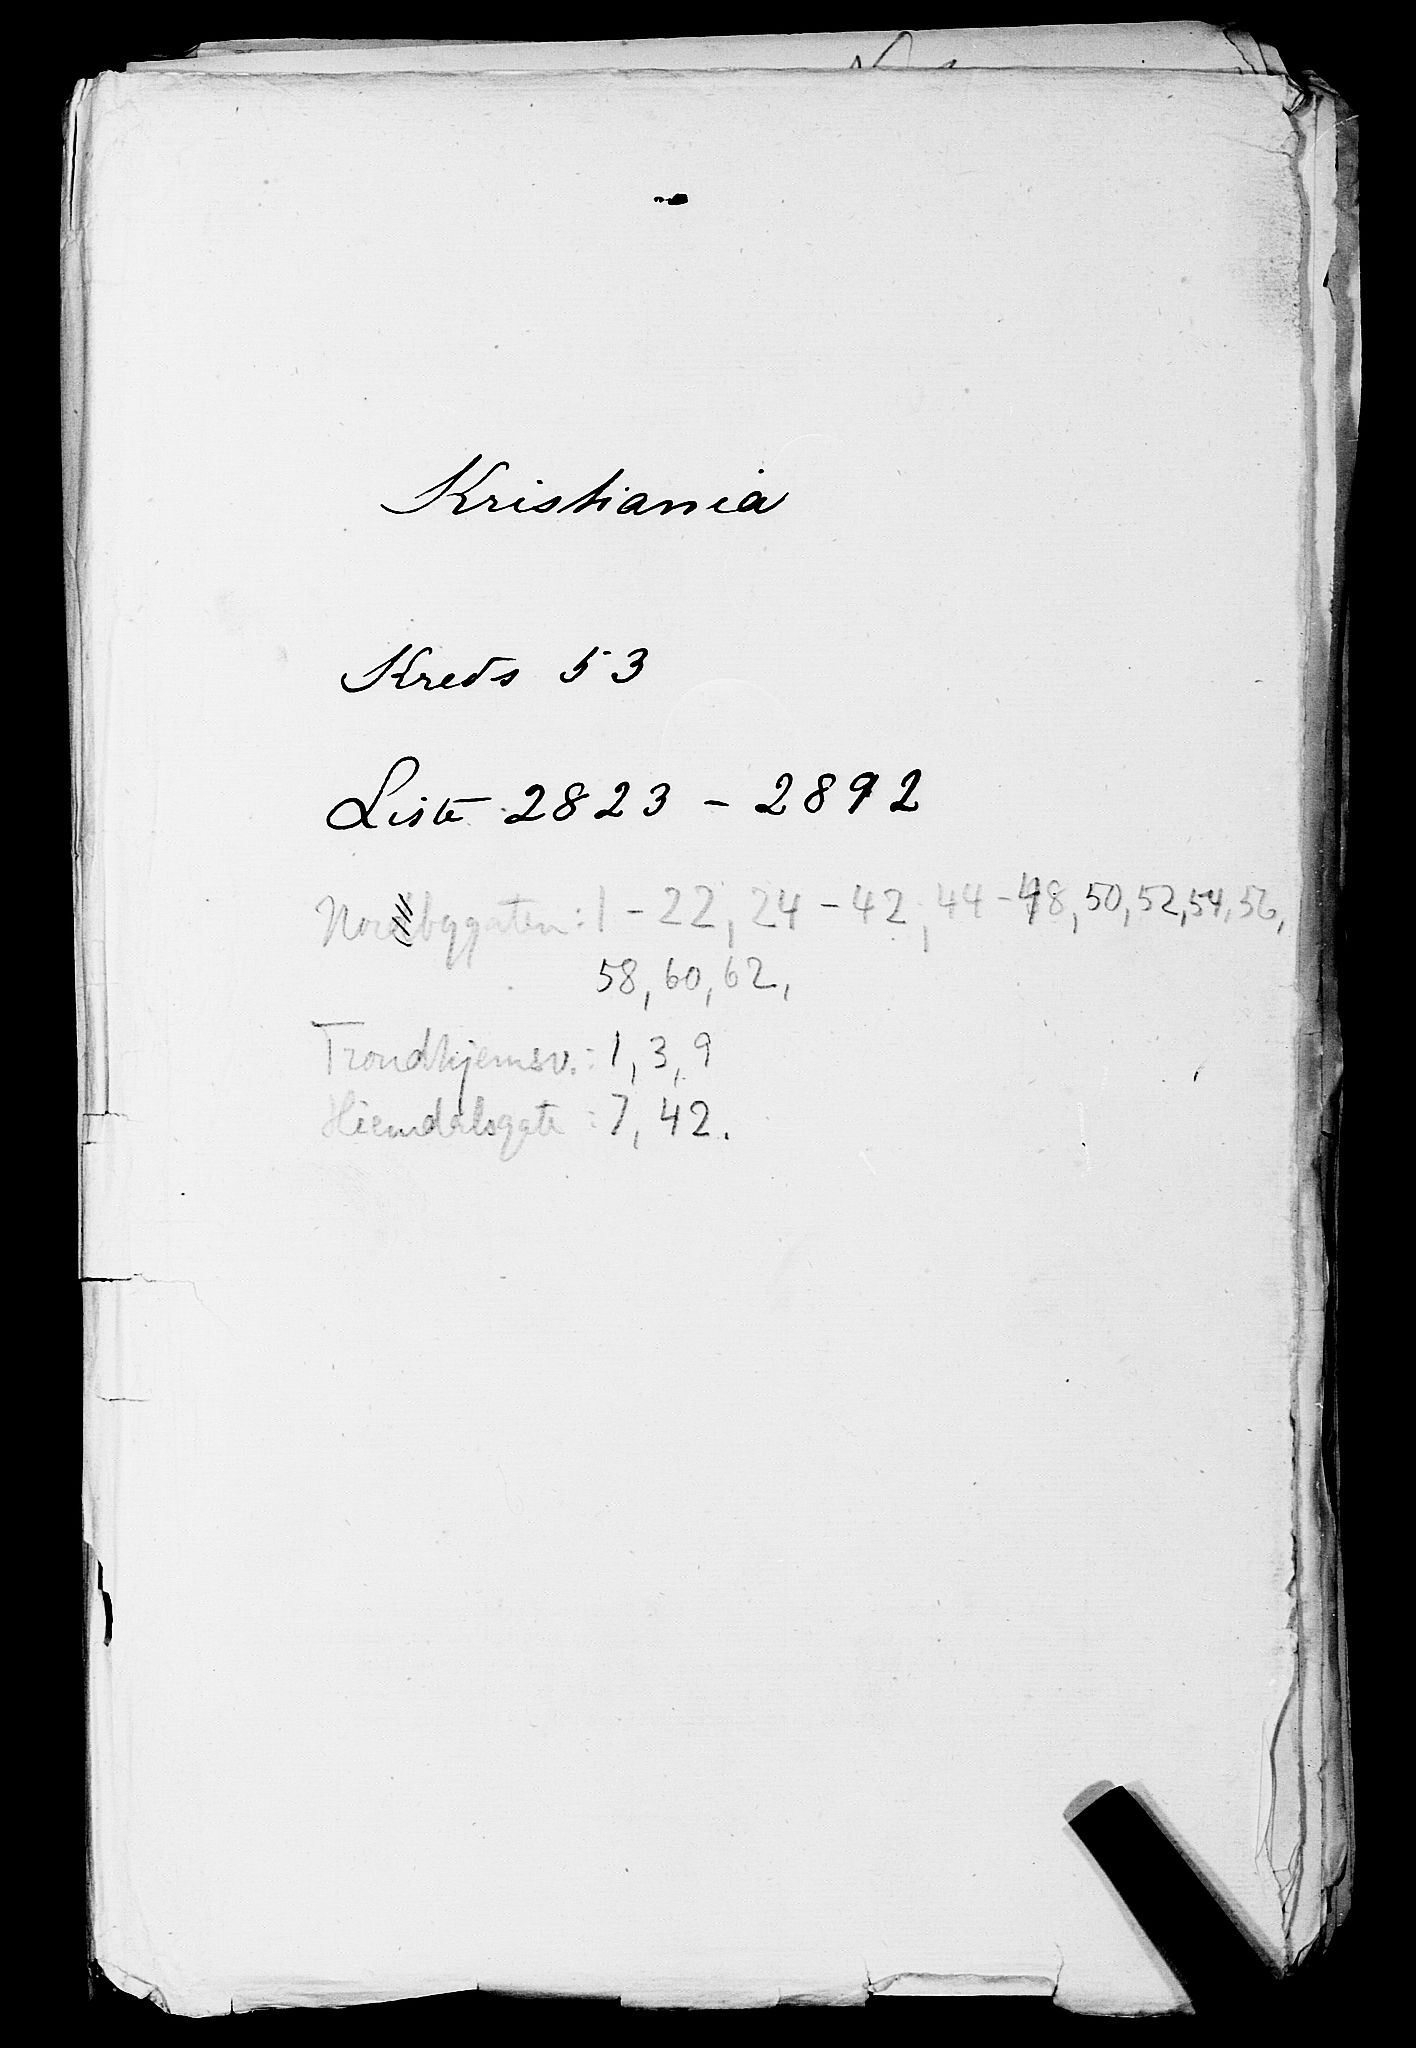 Kristiania
Kreds 53
Liste 2823 - 2892
Norbygaten: 1 - 22, 24 - 42, 44 - 48, 50, 52, 54, 56,
58, 60, 62,
Trondhjemsv.: 1, 3, 9
Hiemdalsgate: 7, 42.